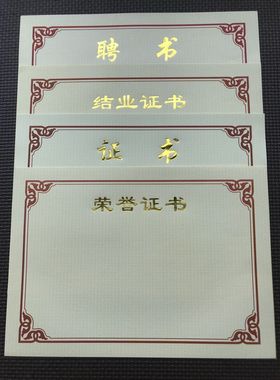 聘 书
结业证书
证 书
荣誉证书